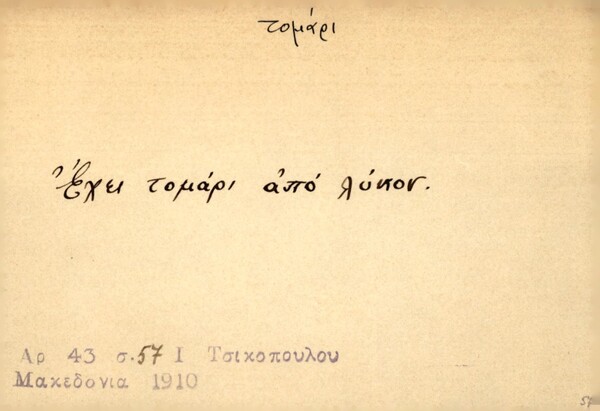 τομάρι
Ἔχει τομάρι ἀπό λύκον.
Αρ 43 σ.57 Ι Τσικοπουλου
Μακεδονια 1910
57